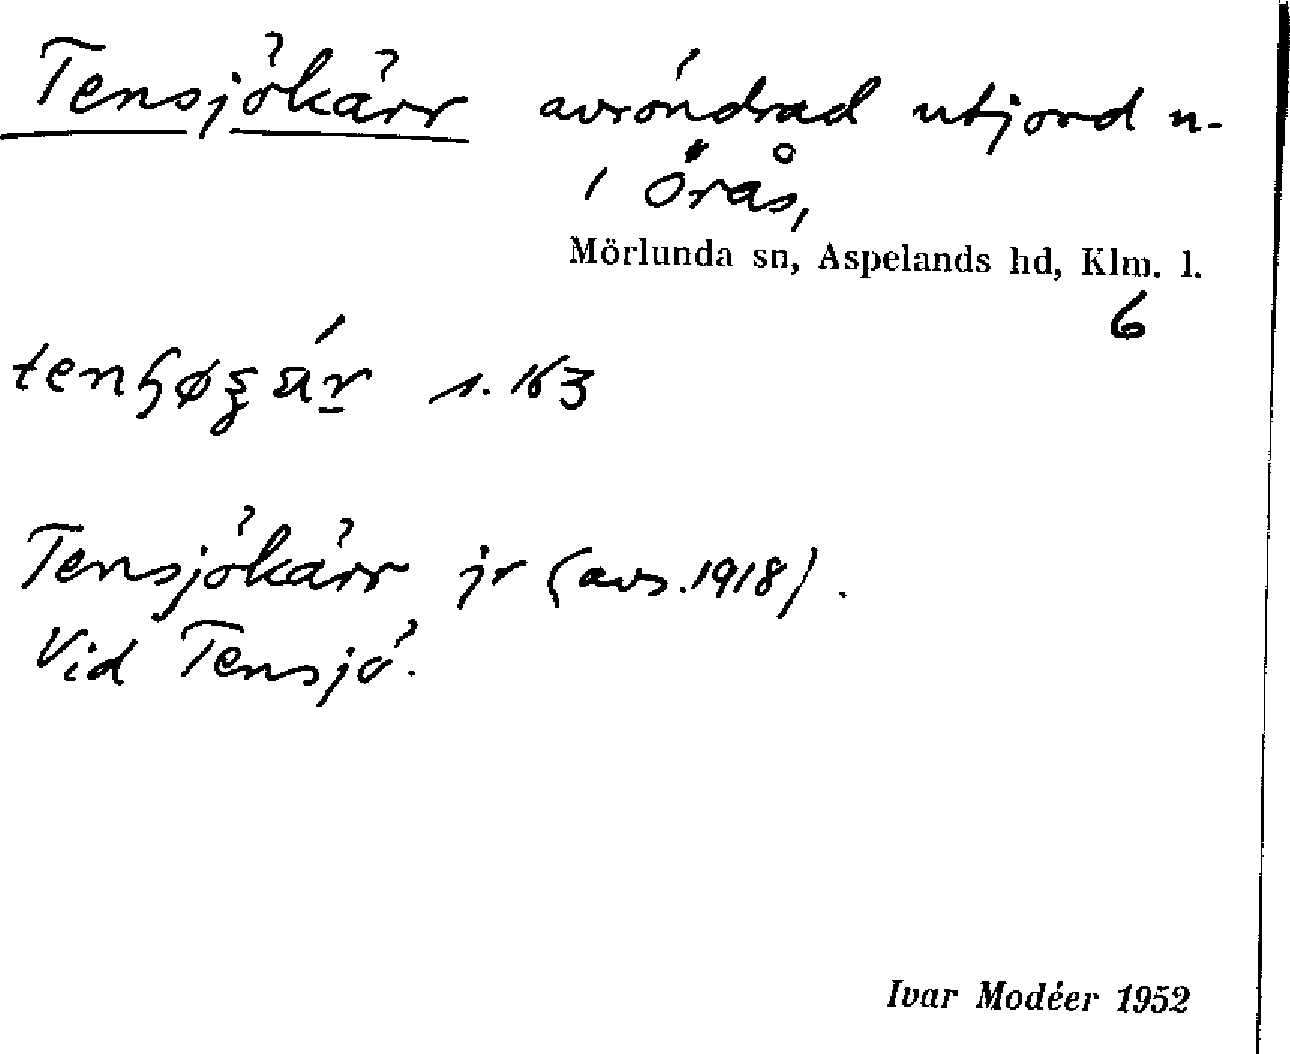 Tensjökärr avröndrad utjord n.
i Örås,
Mörlunda sn, Aspelands hd, Klm. l.
6
s. 163
Tensjökärr jr (avs. 1918).
Vid Tensjö.
Ivar Modéer 1952